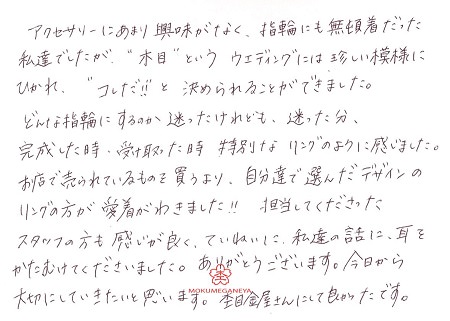 アクセサリーにあまり興味がなく、指輪にも無頓着だった
私達でしたが、“木目”という ウエディングには珍しい模様に
ひかれ、“コレだ!!”と 決められることができました。
どんな指輪にするのか迷ったけれども、迷った分、
完成した時・受け取った時 特別な リングのように感じました。
お店で売られているものを買うより、自分達で選んだデザインの
リングの方が愛着がわきました!! 担当してくださった
スタッフの方も感じが良く、ていねいに、私達の話に、耳を
かたむけてくださいました。ありがとうございます。今日から
大切にしていきたいと思います。杢目金屋さんにして良かったです。
MOKUMEGANEYA